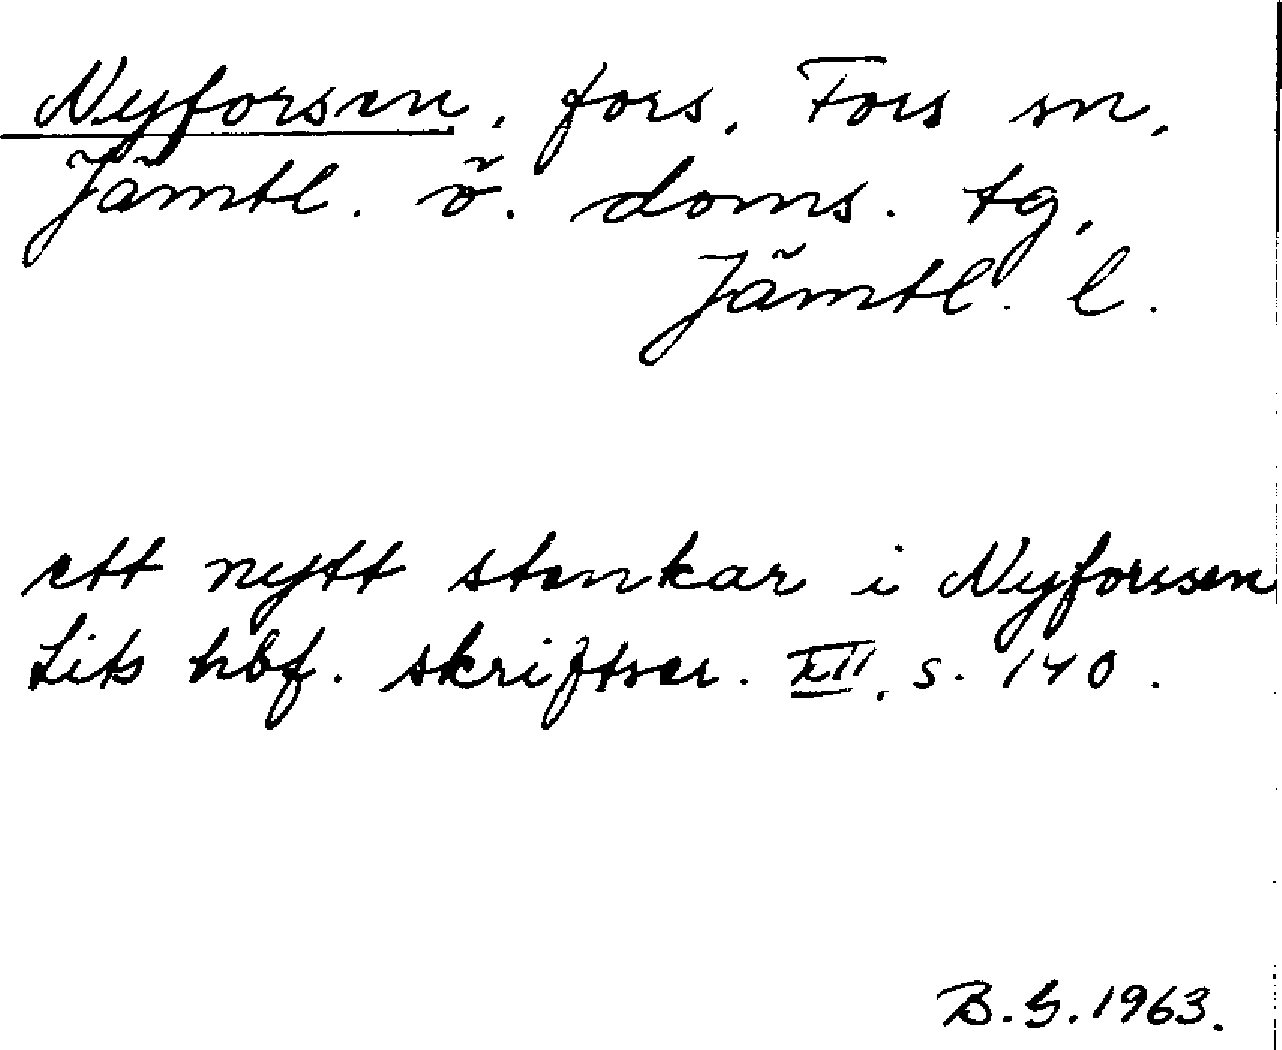 Nyforsen, fors, Fors sn,
Jämtl. ö. doms. tg,
Jämtl. l.
ett nytt stenkar i Nyforssen
Lits hbf. skriftser. XII, s. 140.
B.G. 1963.